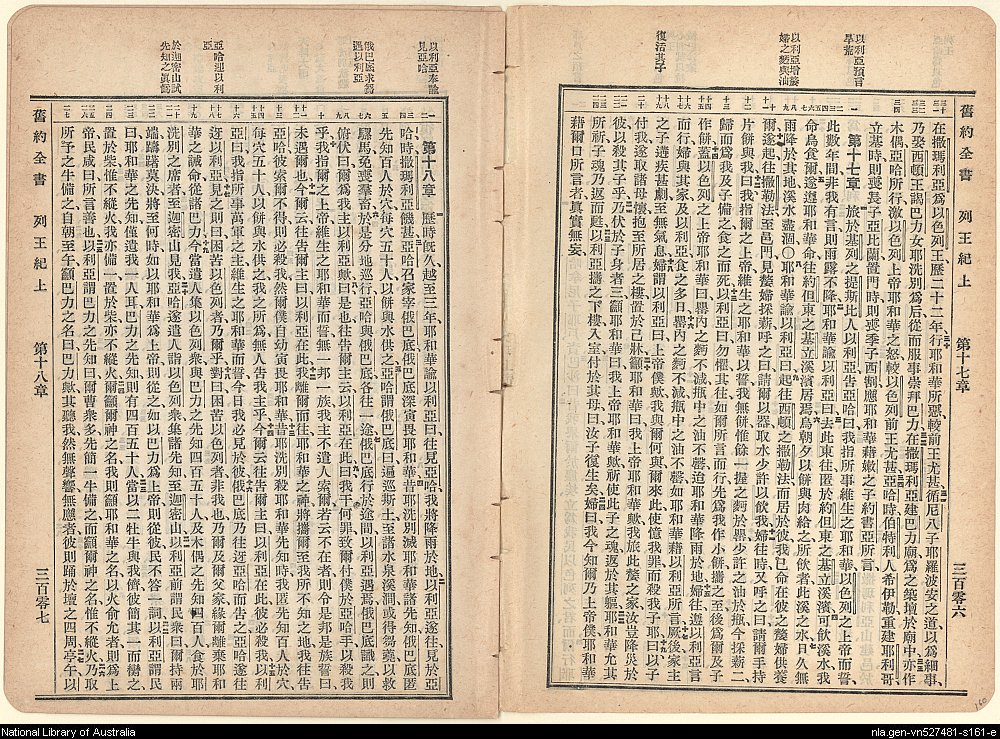 舊約全書 列王紀上 第十七章 三百零六
以利亞預言
旱荒
以利亞增嫠
婦之麪與油
復活其子
在撒瑪利亞爲以色列王歷二十二年行耶和華所惡較前王尤甚循尼八子耶羅波安之道以爲細事
乃娶西頓王謁巴力女耶洗別爲后從而服事崇拜巴力在撒瑪利亞建巴力廟爲之築壇於廟中亦作
木偶亞哈所行激以色列上帝耶和華之怒較以色列前王尤甚亞哈時伯特利人希伊勒重建耶利哥
立基時則喪長子亞比蘭置門時則喪季子西割應耶和華藉嫩之子約書亞所言
第十七章 旅於基列之提斯比人以利亞告亞哈曰我指所事維生之耶和華以色列之上帝而誓
此數年間非我有言則雨露不降耶和華諭以利亞曰去此東往匿於約但東之基立溪濱可飲溪水我
命烏食爾遂遵耶和華命往約但東之基立溪濱居焉烏朝夕以餅與肉給之所飲者此溪之水日久無
雨降於其地溪水盡涸〇耶和華諭以利亞曰起往西頓之撒勒法而居於彼我已命在彼之嫠婦供養
爾遂起往撒勒法至邑門見嫠婦採薪呼之曰請爾以器取水少許以飲我婦往時又呼之曰請爾手持
片餅與我曰我指爾之上帝維生之耶和華以誓我無餅惟餘一握之麪於罌少許之油於瓶今採薪二
歸而爲我及子備之食之而死以利亞曰勿懼其往如爾所言而行先爲我作小餅攜之至後爲爾及子
作餅蓋以色列之上帝耶和華曰罌內之麪不減瓶中之油不罄迨耶和華降雨於地婦往遵以利亞言
而行婦與其家及以利亞食之多日罌內之麪不減瓶中之油不罄如耶和華藉以利亞所言厥後家主
之子遘疾甚劇至無氣息婦謂以利亞曰上帝僕歟我與爾何與爾來此使憶我罪而殺我子耶曰以子
付我遂取諸母懷抱至所居之樓置於己牀籲耶和華曰我上帝耶和華歟我旅此嫠之家汝豈降災於
彼以殺其子乎乃伏於子身者三籲耶和華曰我上帝耶和華歟祈使此子之魂返於其軀耶和華允其
所祈子魂乃返而甦以利亞攜之下樓入室付於其母曰汝子復生矣婦曰我今知爾乃上帝僕耶和華
藉爾口所言者眞實無妄
以利亞奉諭
見亞哈
俄巴底求芻
遇以利亞
亞哈迎以利
亞
於迦密山試
先知之眞僞
第十八章 歷時旣久越至三年耶和華諭以利亞曰往見亞哈我將降雨於地以利亞遂往見於亞
哈時撒瑪利亞饑甚亞哈召家宰俄巴底俄巴底深寅畏耶和華昔耶洗別滅耶和華諸先知俄巴底匿
先知百人於穴每穴五十人以餅與水供之亞哈謂俄巴底曰遍巡斯土至諸水泉溪澗或得芻蕘以救
驟馬免喪羣畜於是分地巡行亞哈與俄巴底各往一途俄巴底行於途間以利亞遇焉俄巴底識之則
俯伏曰爾爲我主以利亞歟曰是也往告爾主云以利亞在此曰我干何罪致爾付僕於亞哈手以殺我
乎我指爾之上帝維生之耶和華而誓無一邦一族我主不遣人索爾若云不在者則以令是邦是族誓曰
未遇爾也今爾云往告爾主曰以利亞在此我離爾而往耶和華之神將攜爾至我所不知之地我往告
亞哈彼尋爾不得則必殺我然爾僕自幼寅畏耶和華昔耶洗別殺耶和華先知時我匿先知百人於穴
每穴五十人以餅與水供之我之所爲無人告我主乎今爾云往告爾主曰以利亞在此彼必殺我以利
亞曰我指所事萬軍之主維生之耶和華而誓今日我必見於彼俄巴底乃往迓亞哈而告之亞哈遂往
迓以利亞見之則曰困苦以色列者乃爾乎對曰困苦以色列者非我也乃爾及爾父家緣爾離棄耶和
華之誡命從諸巴力今當遣人集以色列衆與巴力之先知四百五十人及木偶之先知四百人食於耶
洗別之席者至迦密山見我亞哈遂遣人詣以色列衆集諸先知至迦密山以利亞前謂民衆曰爾持兩
端躊躇莫決將至何時如以耶和華爲上帝則從之如以巴力爲上帝則從彼民不答一詞以利亞謂民
曰耶和華之先知僅遺我一人耳巴力之先知則有四百五十人當以二牡牛與我儕彼簡其一而臠之
置於柴惟不縱火我備其一置於柴亦不縱火爾籲爾神之名我則籲耶和華之名以火俞允者則爲上
帝民咸曰所言善也以利亞謂巴力之先知曰爾曹衆多先簡一牛備之而籲爾神之名惟不縱火乃取
所予之牛備之自朝至午籲巴力之名曰巴力歟其聽我然無聲響無應者彼則踊於壇之四周亭午以
舊約全書 列王紀上 第十八章 三百零七
National Library of Australia
nla.gen-vn527481-s161-e